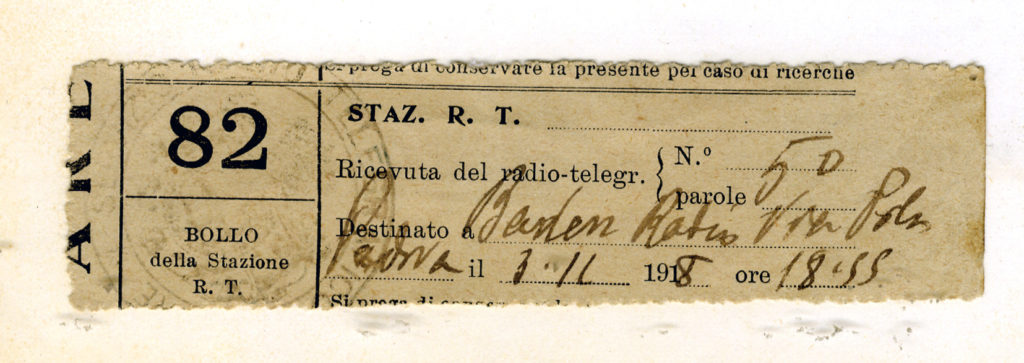 Si prega di conservare la presente pel caso di ricerche
ARE
82
BOLLO
della Stazione
R. T.
STAZ. R. T.
Ricevuta del radio-telegr. { N.º 50
parole
Destinato a Baden Radio Via Pola
Padova il 3·11 1918 ore 18·55
Si prega di conser